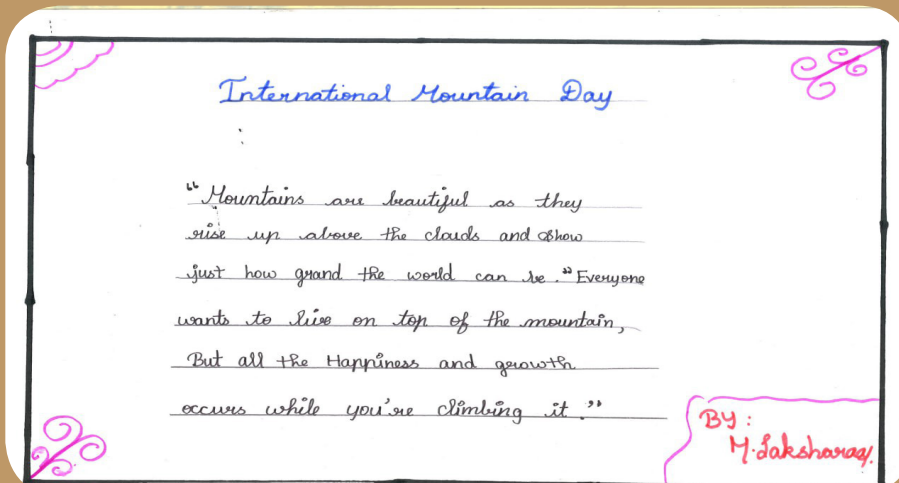 International Mountain Day
"Mountains are beautiful as they
rise up above the clouds and show
just how grand the world can be." Everyone
wants to live on top of the mountain,
But all the Happiness and growth
occurs while you're climbing it."
BY:
M.